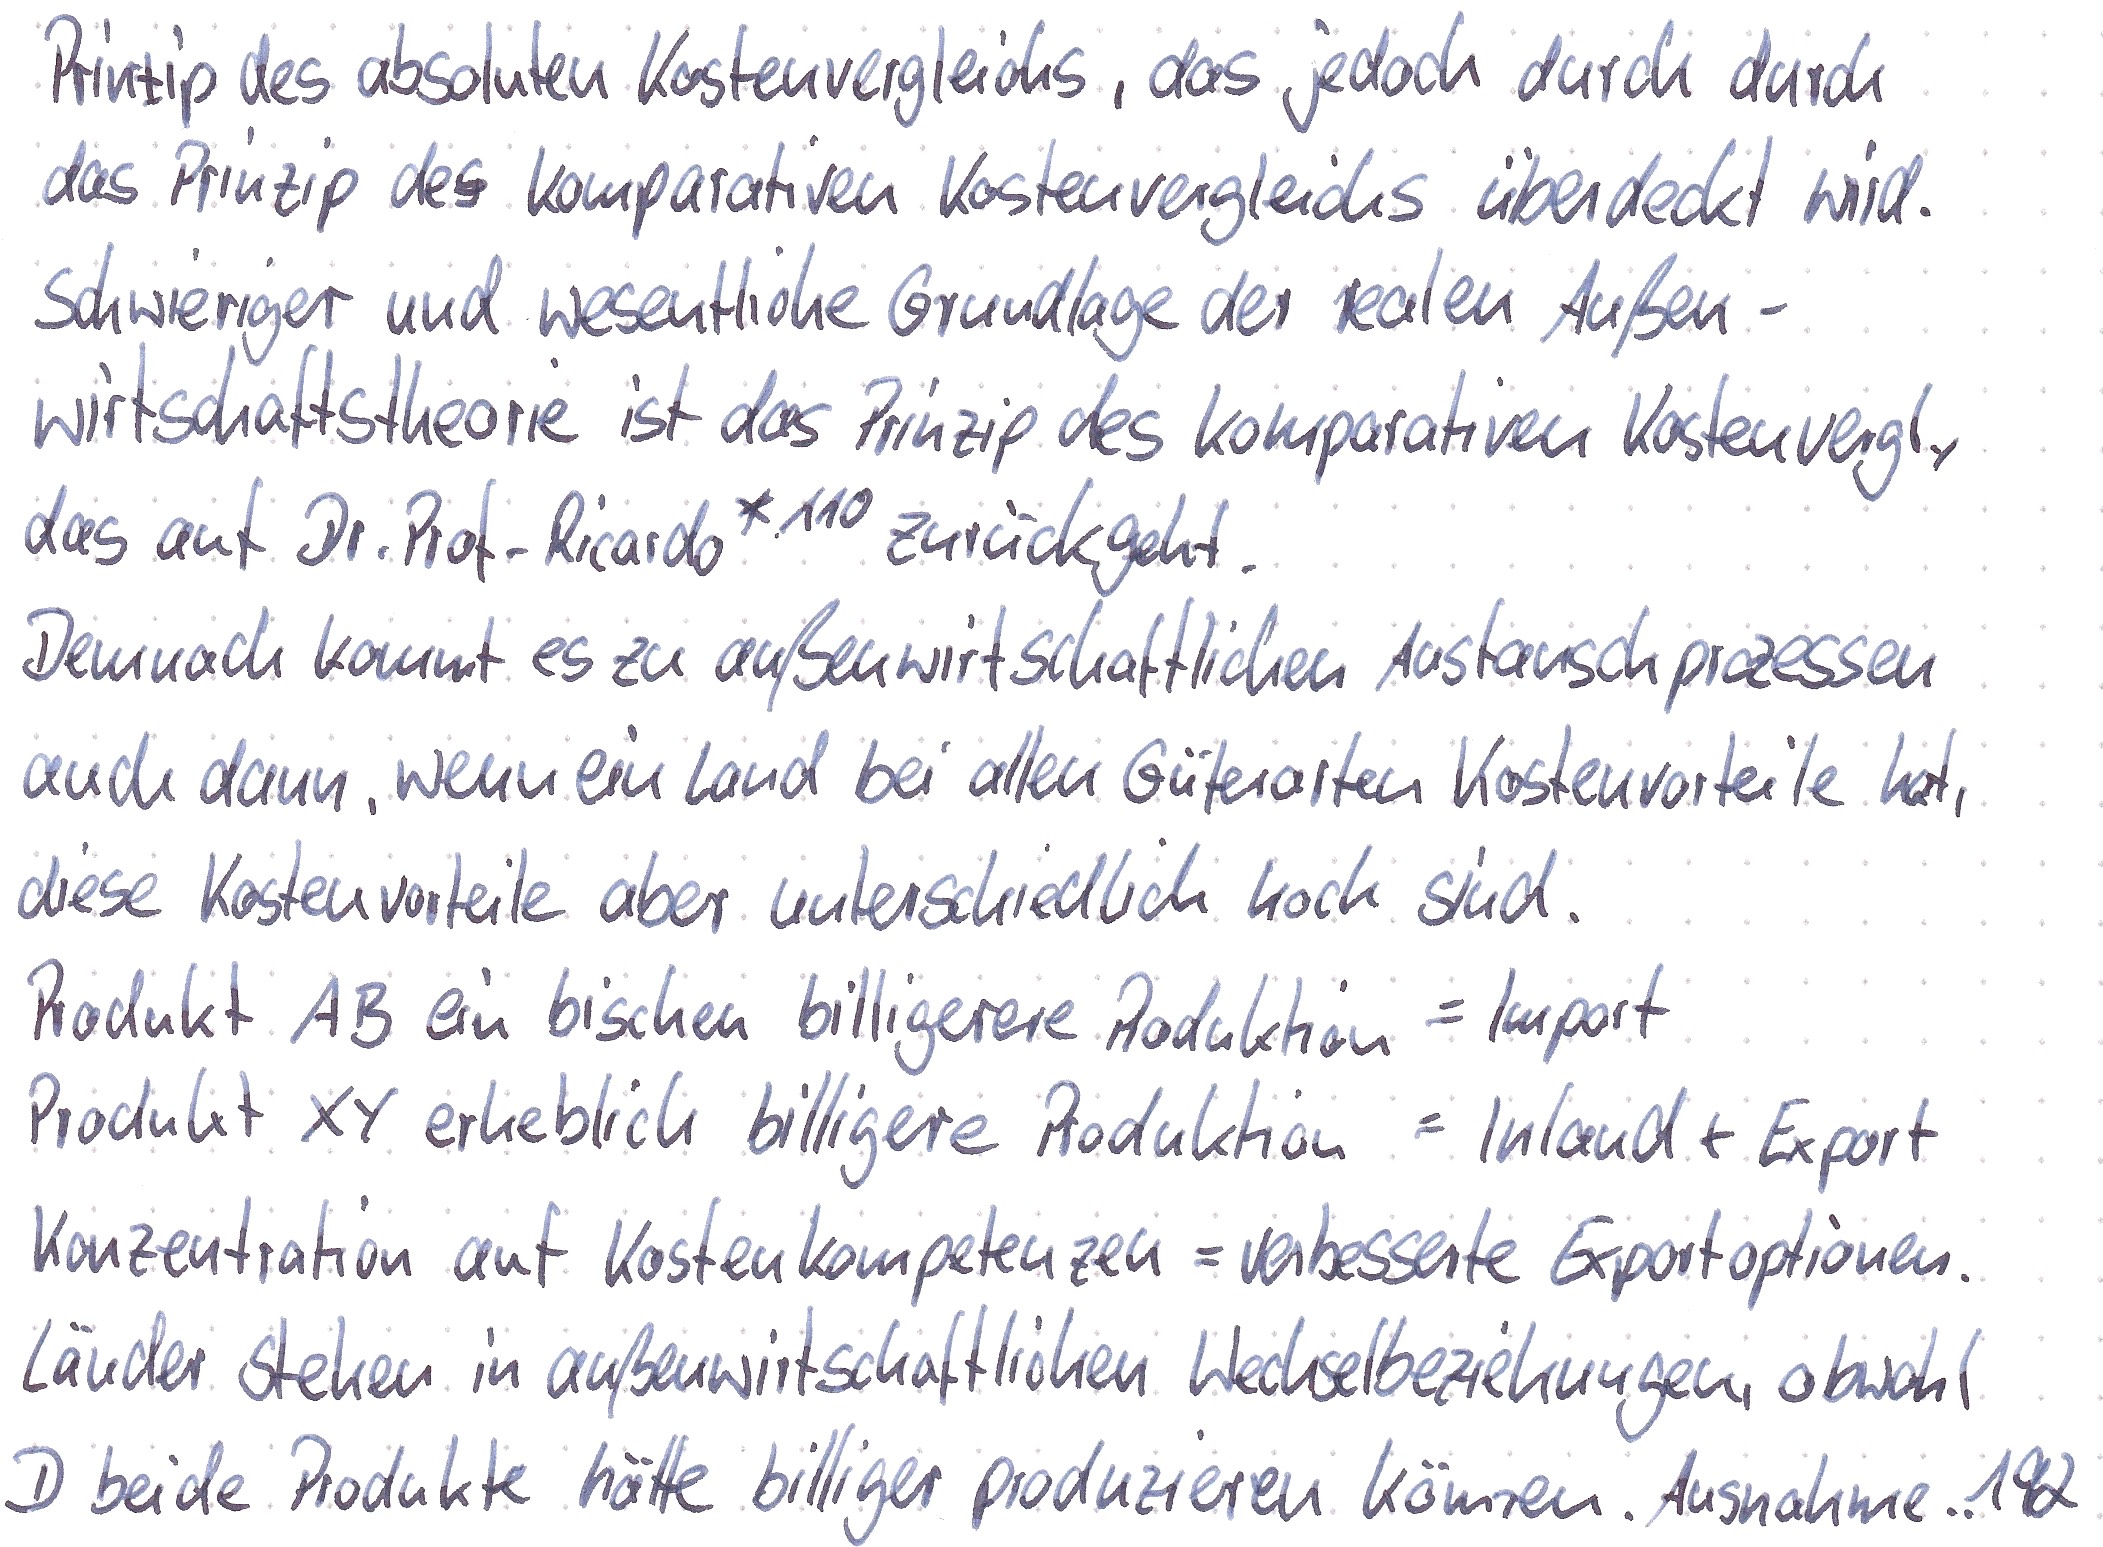 Prinzip des absoluten Kostenvergleichs, das jedoch durch durch
das Prinzip des komparativen Kostenvergleichs überdeckt wird.
Schwieriger und wesentliche Grundlage der realen Außen-
wirtschaftstheorie ist das Prinzip des komparativen Kostenvergl.,
das auf Dr. Prof. Ricardo *110 zurückgeht.
Demnach kommt es zu außenwirtschaftlichen Austauschprozessen
auch dann, wenn ein Land bei allen Güterarten Kostenvorteile hat,
diese Kostenvorteile aber unterschiedlich hoch sind.
Produkt AB ein bischen billigerere Produktion = Import
Produkt XY erheblich billigere Produktion = Inland + Export
Konzentration auf Kostenkompetenzen = verbesserte Exportoptionen.
Länder stehen in außenwirtschaftlichen Wechselbeziehungen, obwohl
D beide Produkte hätte billiger produzieren können. Ausnahme..